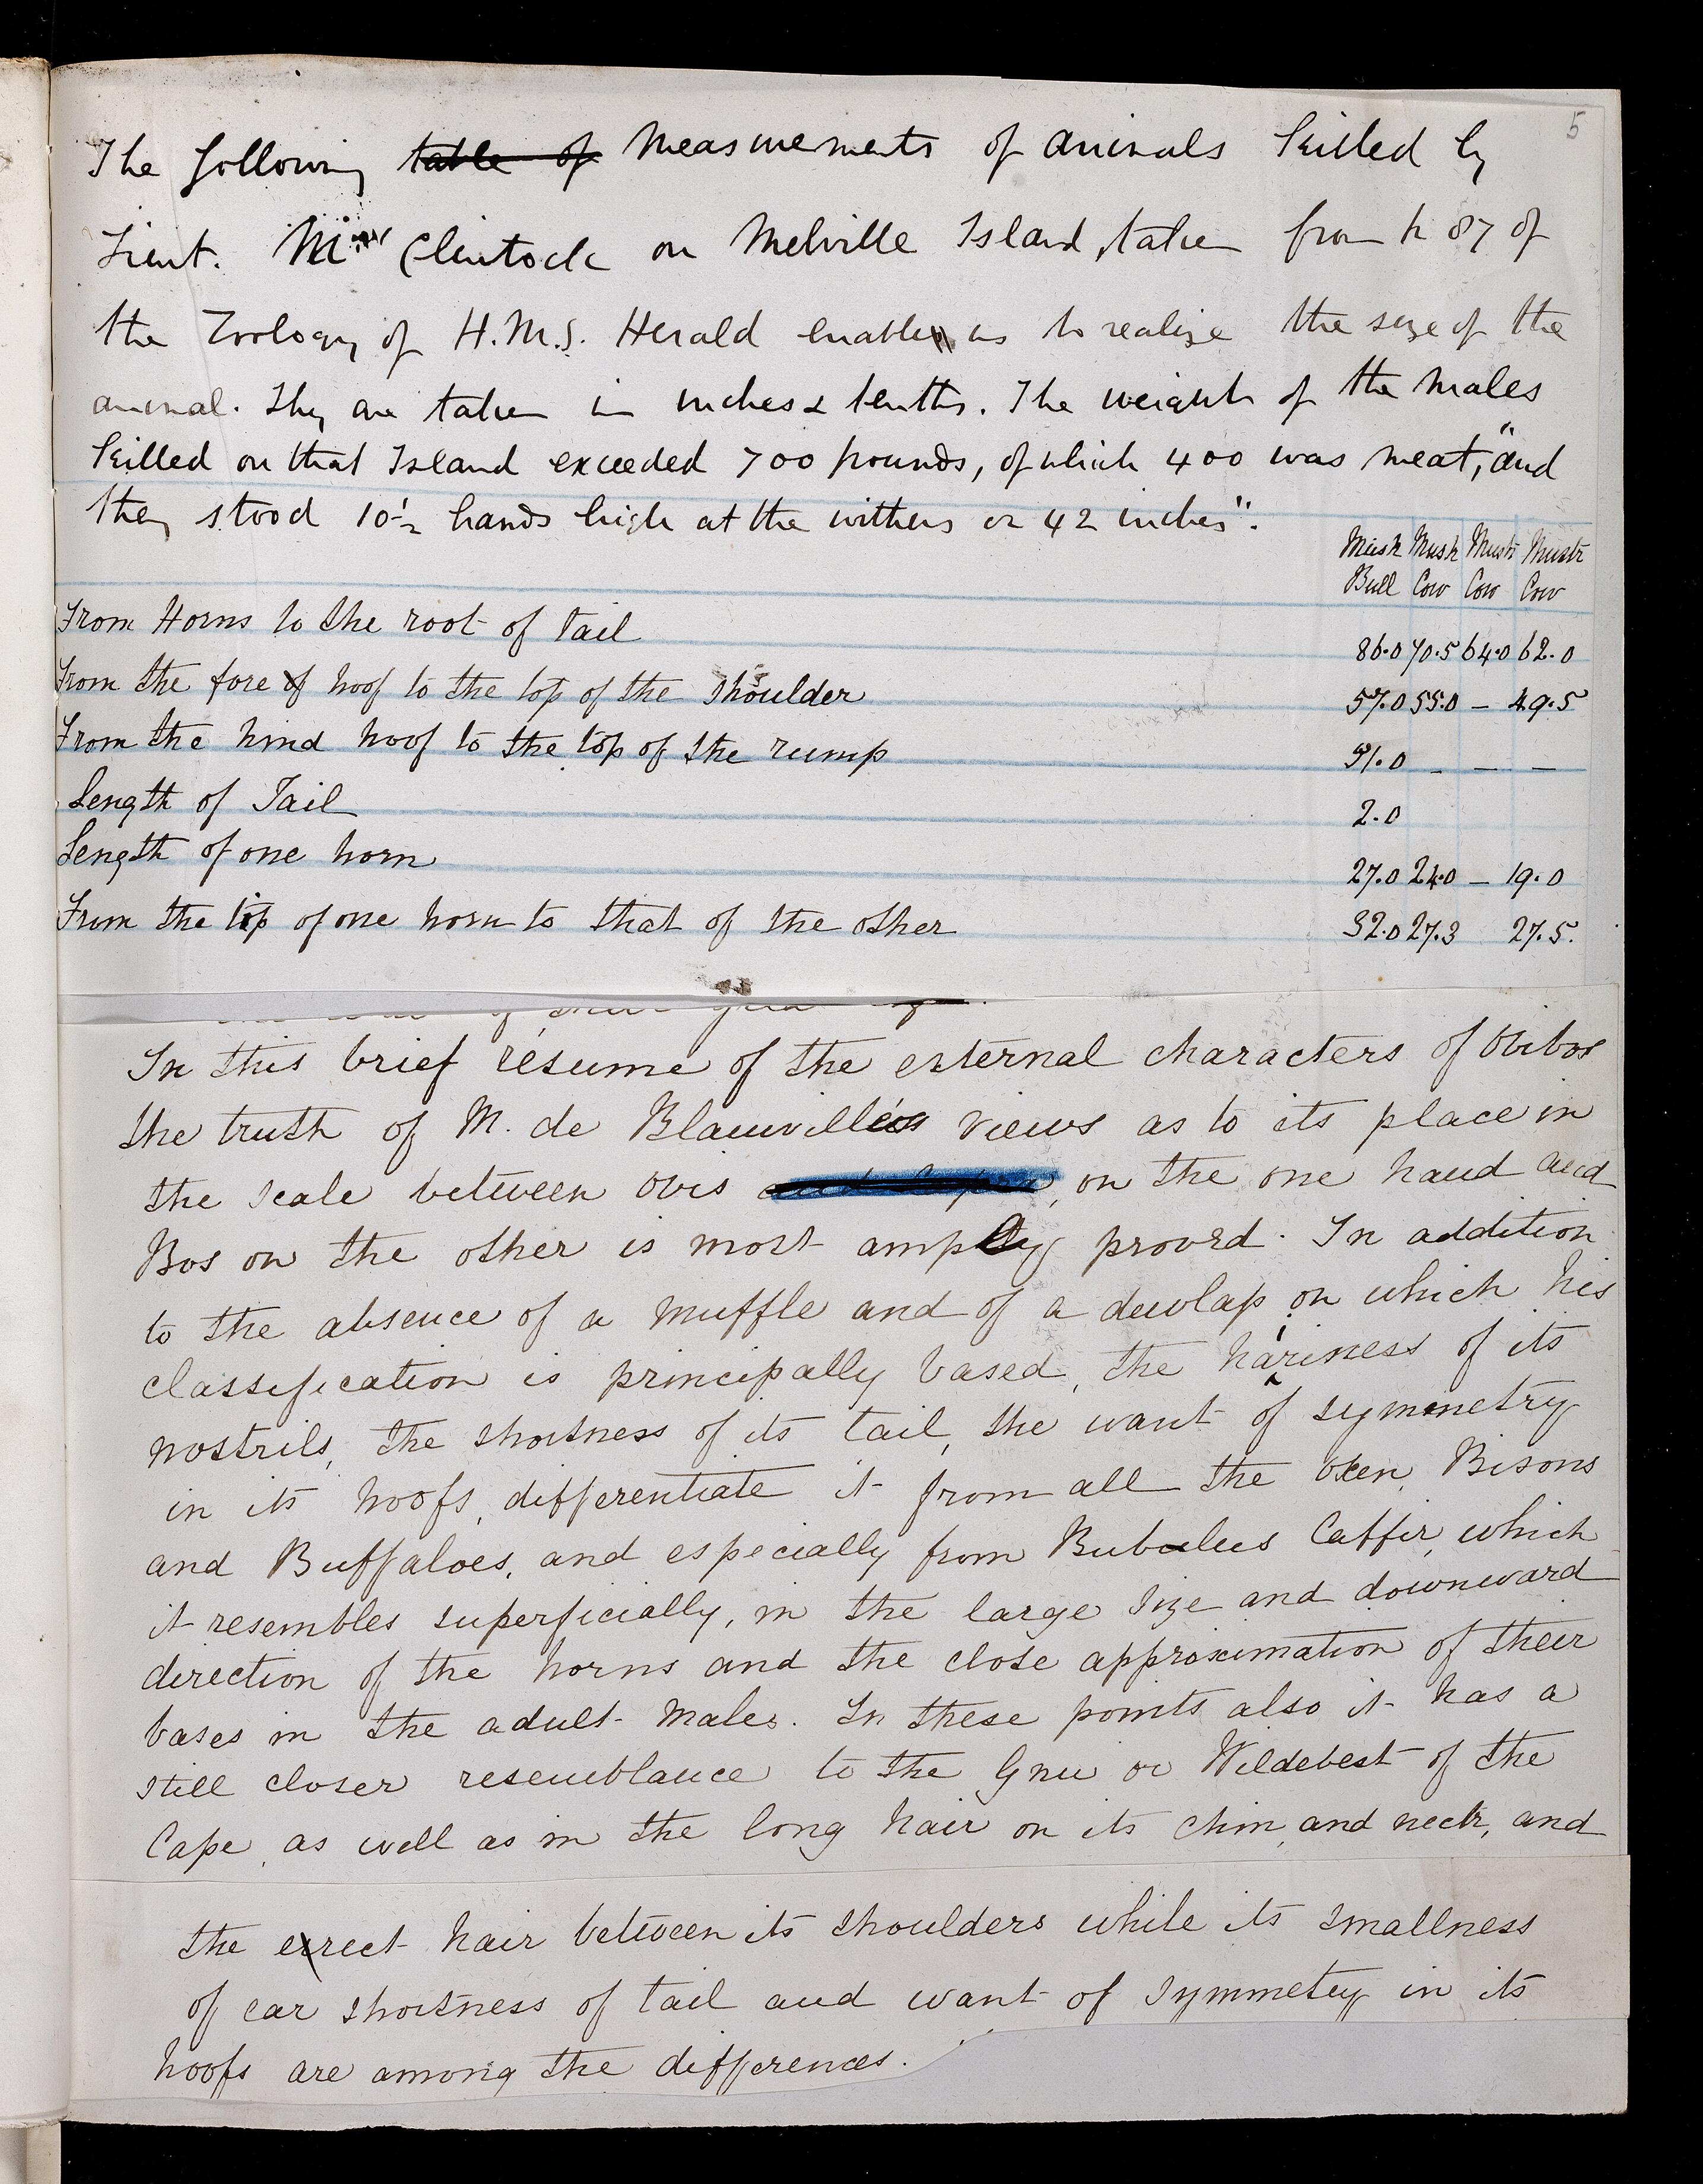 5
The following table of Measurements of animals killed by
Lieut. Mc Clintock on Melville Island, taken from p 87 of
the Zoology of H.M.S. Herald enable us to realize the size of the
animal. They are taken in inches & tenths. The weight of the males
killed on that Island exceeded 700 pounds, of which 400 was meat, "and
they stood 10½ hands high at the withers or 42 inches".
Musk Musk Musk Musk
Bull Cow Cow Cow
From Horns to the root of Tail 86.0 70.5 64.0 62.0
From the fore of hoof to the top of the shoulder 57.0 55.0 – 49.5
From the hind hoof to the top of the rump 51.0 – – –
Length of Tail 2.0
Length of one horn 27.0 24.0 – 19.0
From the tip of one horn to that of the other 32.0 27.3 27.5.
In this brief résumé of the external characters of Ovibos
the truth of M. de Blainville's views as to its place in
the scale between Ovis on the one hand and
Bos on the other is most amply proved. In addition
to the absence of a muffle and of a dewlap on which his
classification is principally based, the hairiness of its
nostrils, the shortness of its tail, the want of symmetry
in its hoofs, differentiate it from all the Oxen, Bisons
and Buffaloes, and especially from Bubalus Caffir, which
it resembles superficially, in the large size and downward
direction of the horns and the close approximation of their
bases in the adult males. In these points also it has a
still closer resemblance to the Gnu or Wildebest of the
Cape, as well as in the long hair on its chin and neck, and
the erect hair between its shoulders while its smallness
of ear shortness of tail and want of symmetry in its
hoofs are among the differences.